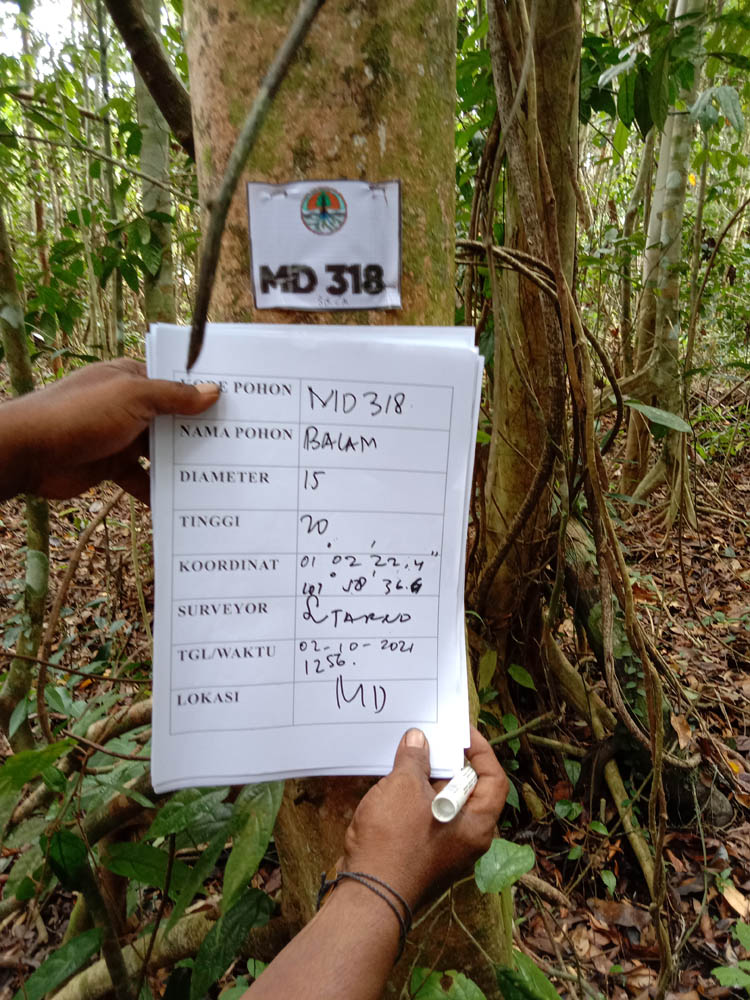 MD 318
KODE POHON MD 318
NAMA POHON BALAM
DIAMETER 15
TINGGI 20
KOORDINAT 01° 02' 22.4"
58' 36.6
SURVEYOR TARNO
TGL/WAKTU 02-10-2021
1256.
LOKASI MD